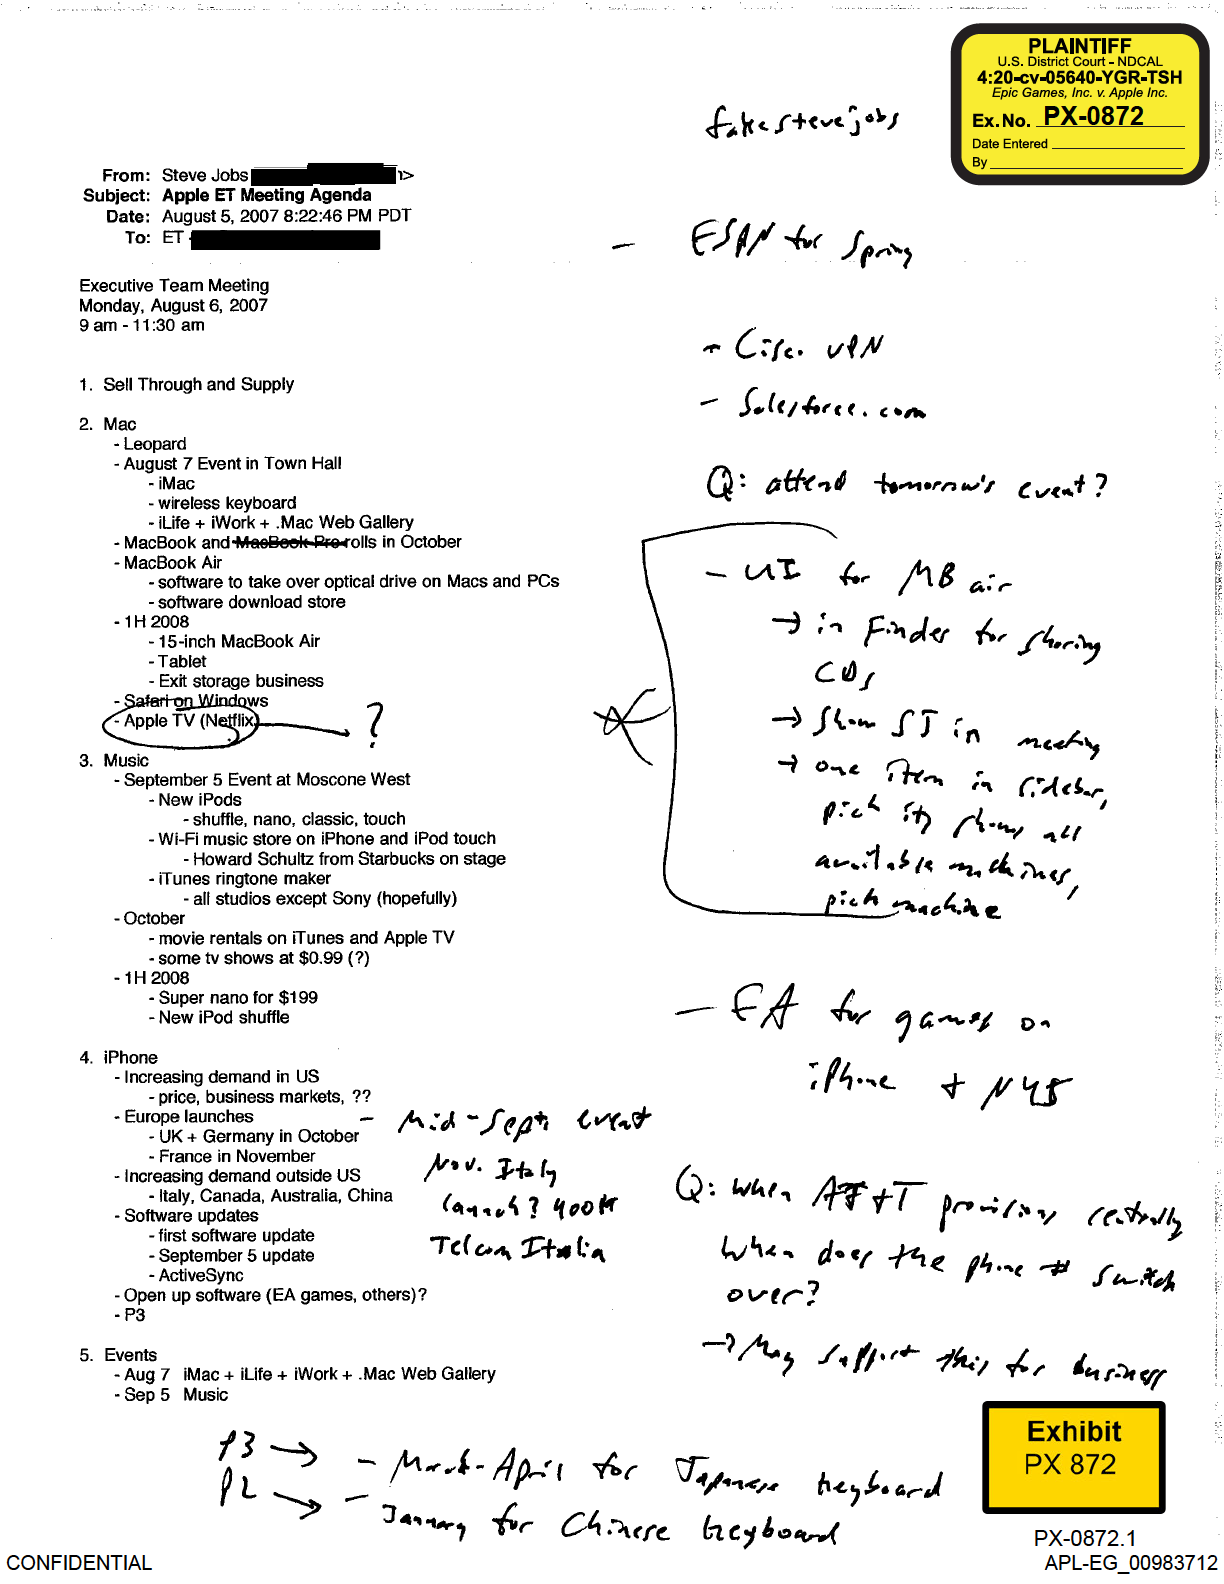 PLAINTIFF
U.S. District Court - NDCAL
4:20-cv-05640-YGR-TSH
Epic Games, Inc. v. Apple Inc.
Ex.No. PX-0872
Date Entered
By
fakestevejobs
From: Steve Jobs >
Subject: Apple ET Meeting Agenda
Date: August 5, 2007 8:22:46 PM PDT
To: ET
- ESPN for Spring
Executive Team Meeting
Monday, August 6, 2007
9 am - 11:30 am
- Cisco VPN
- Salesforce.com
Q: attend tomorrow's event?
1. Sell Through and Supply
2. Mac
- Leopard
- August 7 Event in Town Hall
- iMac
- wireless keyboard
- iLife + iWork + .Mac Web Gallery
- MacBook and MacBook Pro rolls in October
- MacBook Air
- software to take over optical drive on Macs and PCs
- software download store
- 1H 2008
- 15-inch MacBook Air
- Tablet
- Exit storage business
- Safari on Windows
- Apple TV (Netflix) → ?
- UI for MB air
→ in Finder for sharing
CDs
→ Show SJ in meeting
→ one item in sidebar,
pick it, shows all
available machines,
pick machine
3. Music
- September 5 Event at Moscone West
- New iPods
- shuffle, nano, classic, touch
- Wi-Fi music store on iPhone and iPod touch
- Howard Schultz from Starbucks on stage
- iTunes ringtone maker
- all studios except Sony (hopefully)
- October
- movie rentals on iTunes and Apple TV
- some tv shows at $0.99 (?)
- 1H 2008
- Super nano for $199
- New iPod shuffle
- EA for games on
iPhone +
4. iPhone
- Increasing demand in US
- price, business markets, ??
- Europe launches
- UK + Germany in October
- France in November
- Increasing demand outside US
- Italy, Canada, Australia, China
- Software updates
- first software update
- September 5 update
- ActiveSync
- Open up software (EA games, others)?
- P3
- Mid-Sept. event
Nov. Italy
launch? 400M
Telecom Italia
Q: when AT+T provisions centrally
when does the phone # switch
over?
→ May support this for business
5. Events
- Aug 7 iMac + iLife + iWork + .Mac Web Gallery
- Sep 5 Music
P3 → - March-April for Japanese keyboard
P2 → - January for Chinese keyboard
Exhibit
PX 872
PX-0872.1
CONFIDENTIAL
APL-EG_00983712